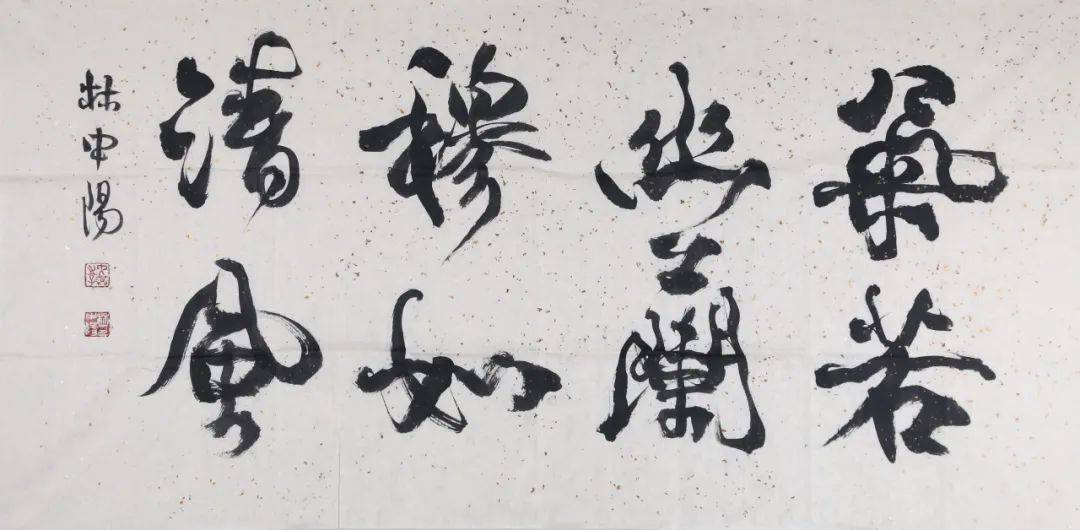 氣若
幽蘭
穆如
清風
林申陽